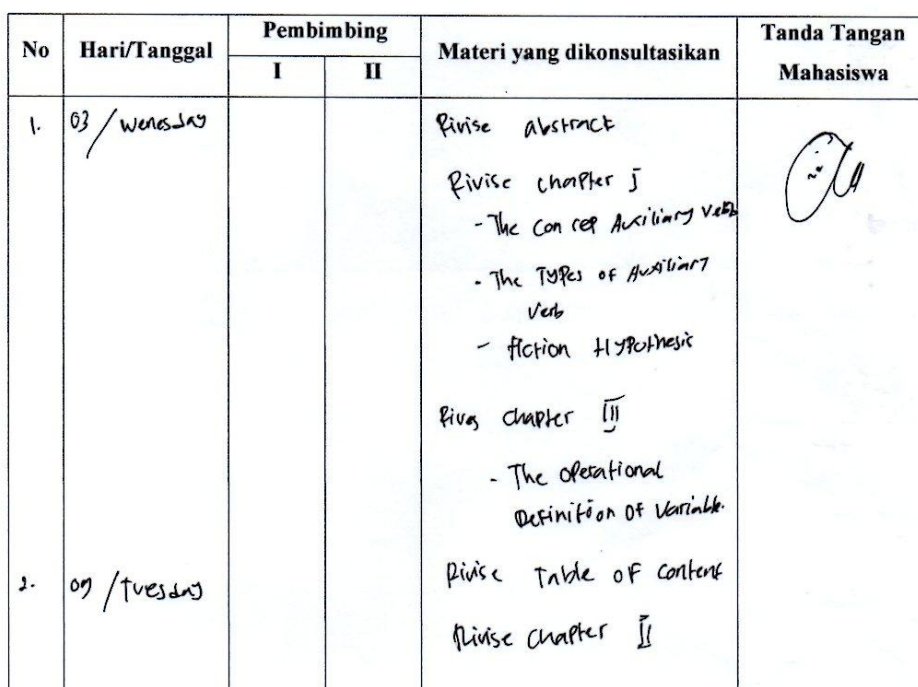 No Hari/Tanggal Pembimbing Materi yang dikonsultasikan Tanda Tangan Mahasiswa
I II
1. 03 / Wenesday Rivise abstract
Rivise chapter I
- The Concep Auxiliary Verb
- The Types of Auxiliary
Verb
- Action Hypothesis
Rives chapter III
- The Operational
Definition Of Variable.
2. 09 / Tuesday Rivise Table of Content
Rivise Chapter II